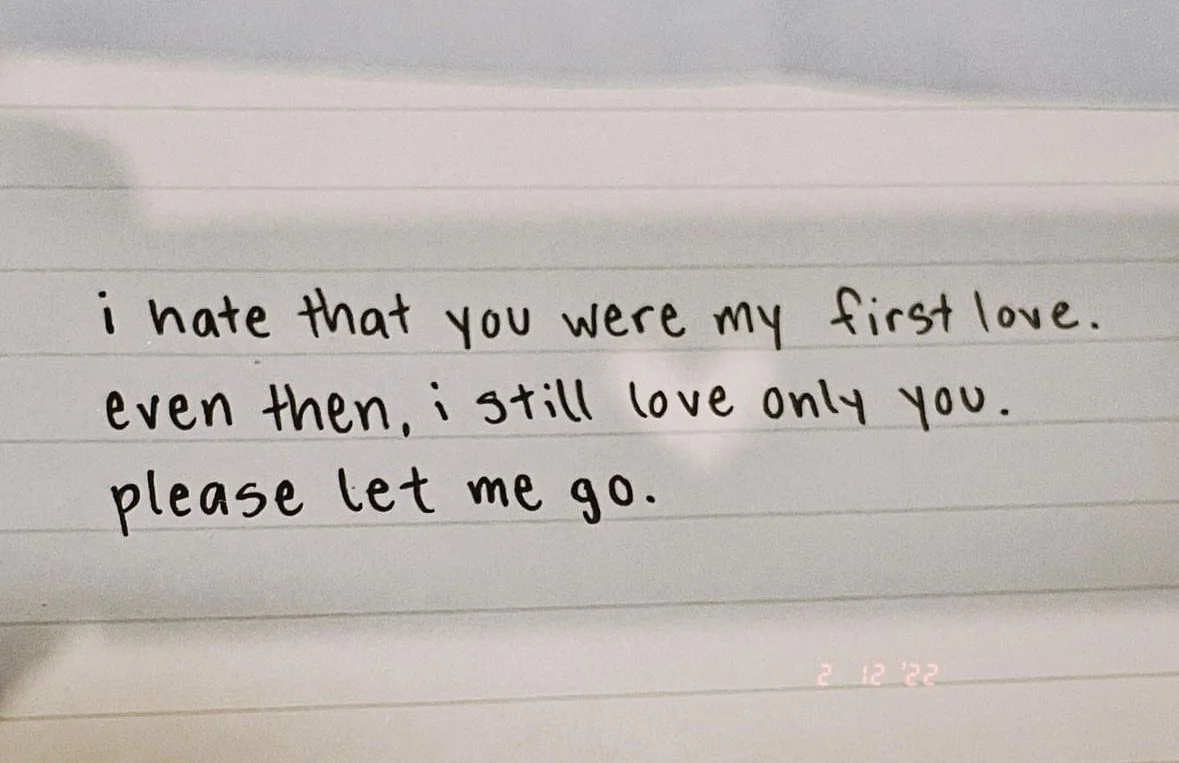 i hate that you were my first love.
even then, i still love only you.
please let me go.
2 12 '22